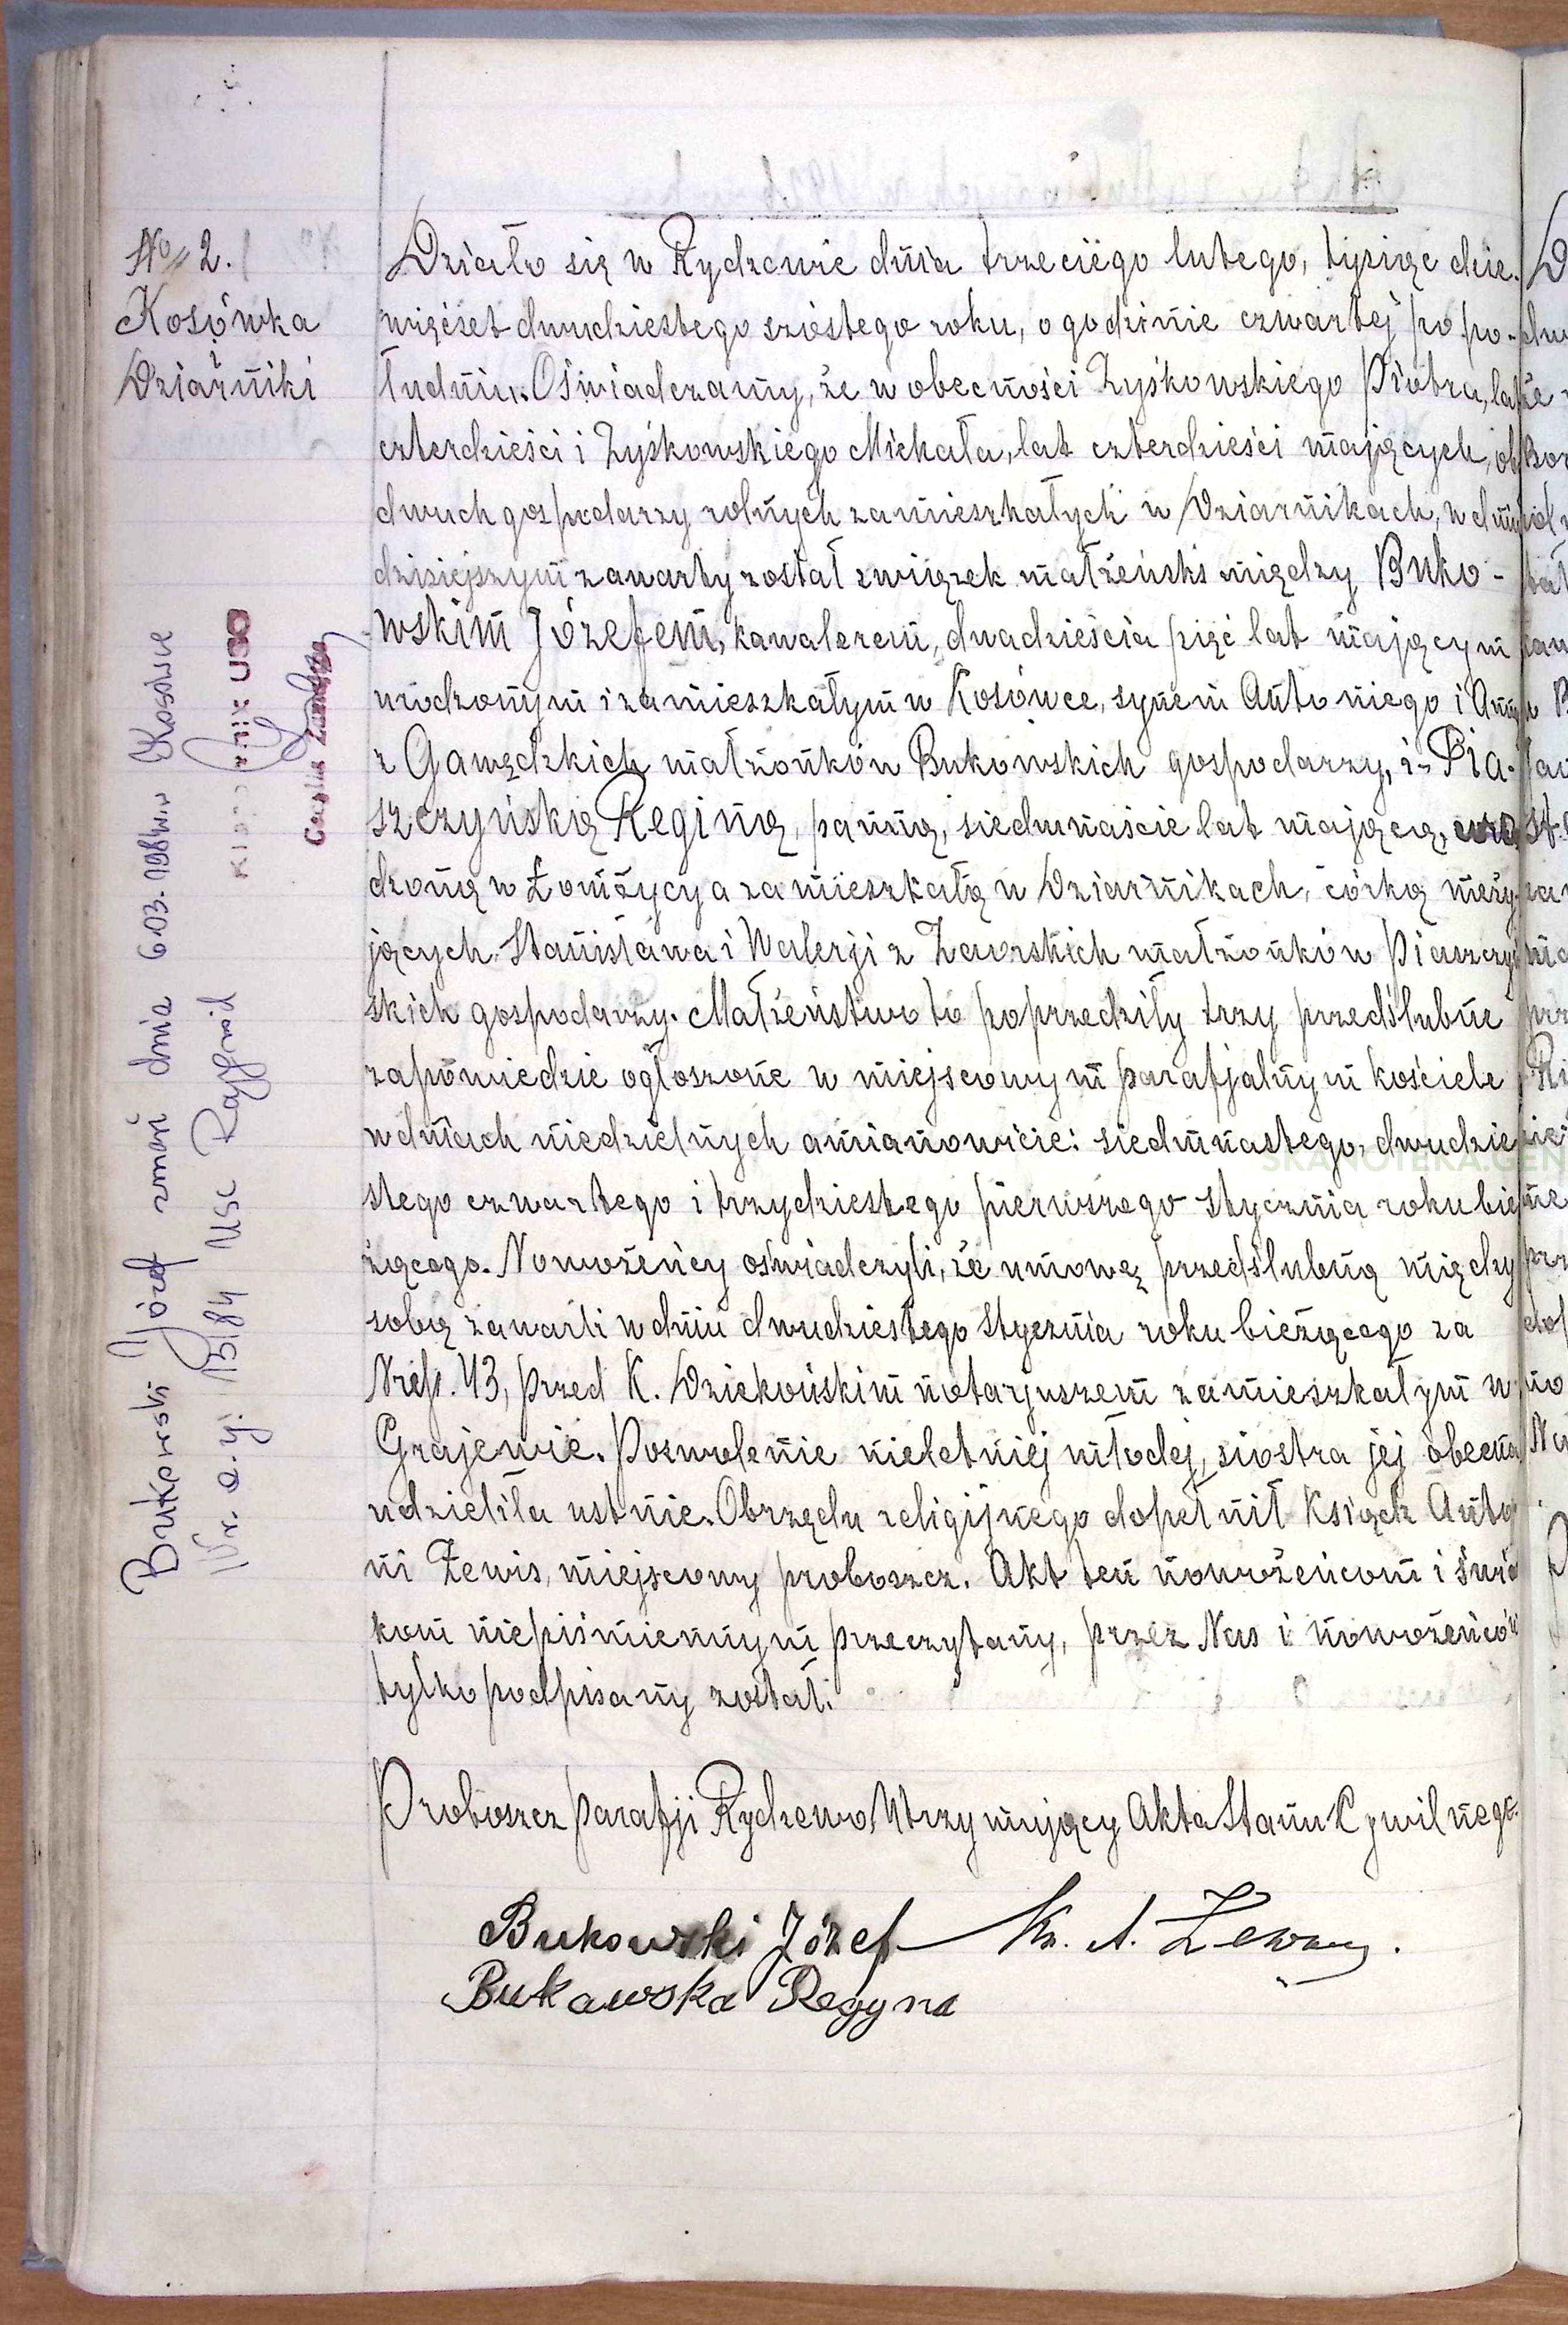 No 2.
Kosówka
Dziarniki
Działo się w Rydzewie dnia trzeciego lutego, tysiąc dzie-
więćset dwudziestego szóstego roku, o godzinie czwartej po po-
łudniu. Oświadczamy, że w obecności Zyskowskiego Piotra, lat
czterdzieści i Zyskowskiego Michała, lat czterdzieści mających, ob
dwuch gospodarzy rolnych zamieszkałych w Dziarnikach, w dniu
dzisiejszym zawarty został związek małżeński między Buko-
wskim Józefem, kawalerem, dwadzieścia pięć lat mającym
urodzonym i zamieszkałym w Kosówce, synem Antoniego i Anny
z Gawędzkich małżonków Bukowskich gospodarzy, i - Pia-
szczyńską Reginą, panną, siedmnaście lat mającą, uro
dzoną w Łomżycy a zamieszkałą w Dziarnikach, córką nieży-
jących Stanisława i Walerji z Zaworskich małżonków Piaszczyń
skich gospodarzy. Małżeństwo to poprzedziły trzy przedślubne
zapowiedzie ogłoszone w miejscowym parafjalnym kościele
w dniach niedzielnych a mianowicie: siedmnastego, dwudzie
stego czwartego i trzydziestego pierwszego stycznia roku bie
żącego. Nowożeńcy oświadczyli, że umowę przedślubną między
sobą zawarli w dniu dwudziestego stycznia roku bieżącego za
Nrep. 43, przed K. Dziekońskim notarjuszem zamieszkałym w
Grajewie. Pozwolenie nieletniej młodej, siostra jej obecna
udzieliła ustnie. Obrzędu religijnego dopełnił Ksiądz Anto
ni Żewis, miejscowy proboszcz. Akt ten nowożeńcom i świad
kom niepiśmiennym przeczytany, przez Nas i nowożeńców
tylko podpisany został.
Proboszcz parafji Rydzewo, Utrzymujący Akta Stanu Cywilnego.
Bukowski Józef Ks. A. Żewis.
Bukawska Regyna
Bukowski Józef zmarł dnia 6.03.1984 w Kosówce
Nr. a. z. 13/84 USC Rajgród
KIEROWNIK USC
SKANOTEKA.GEN